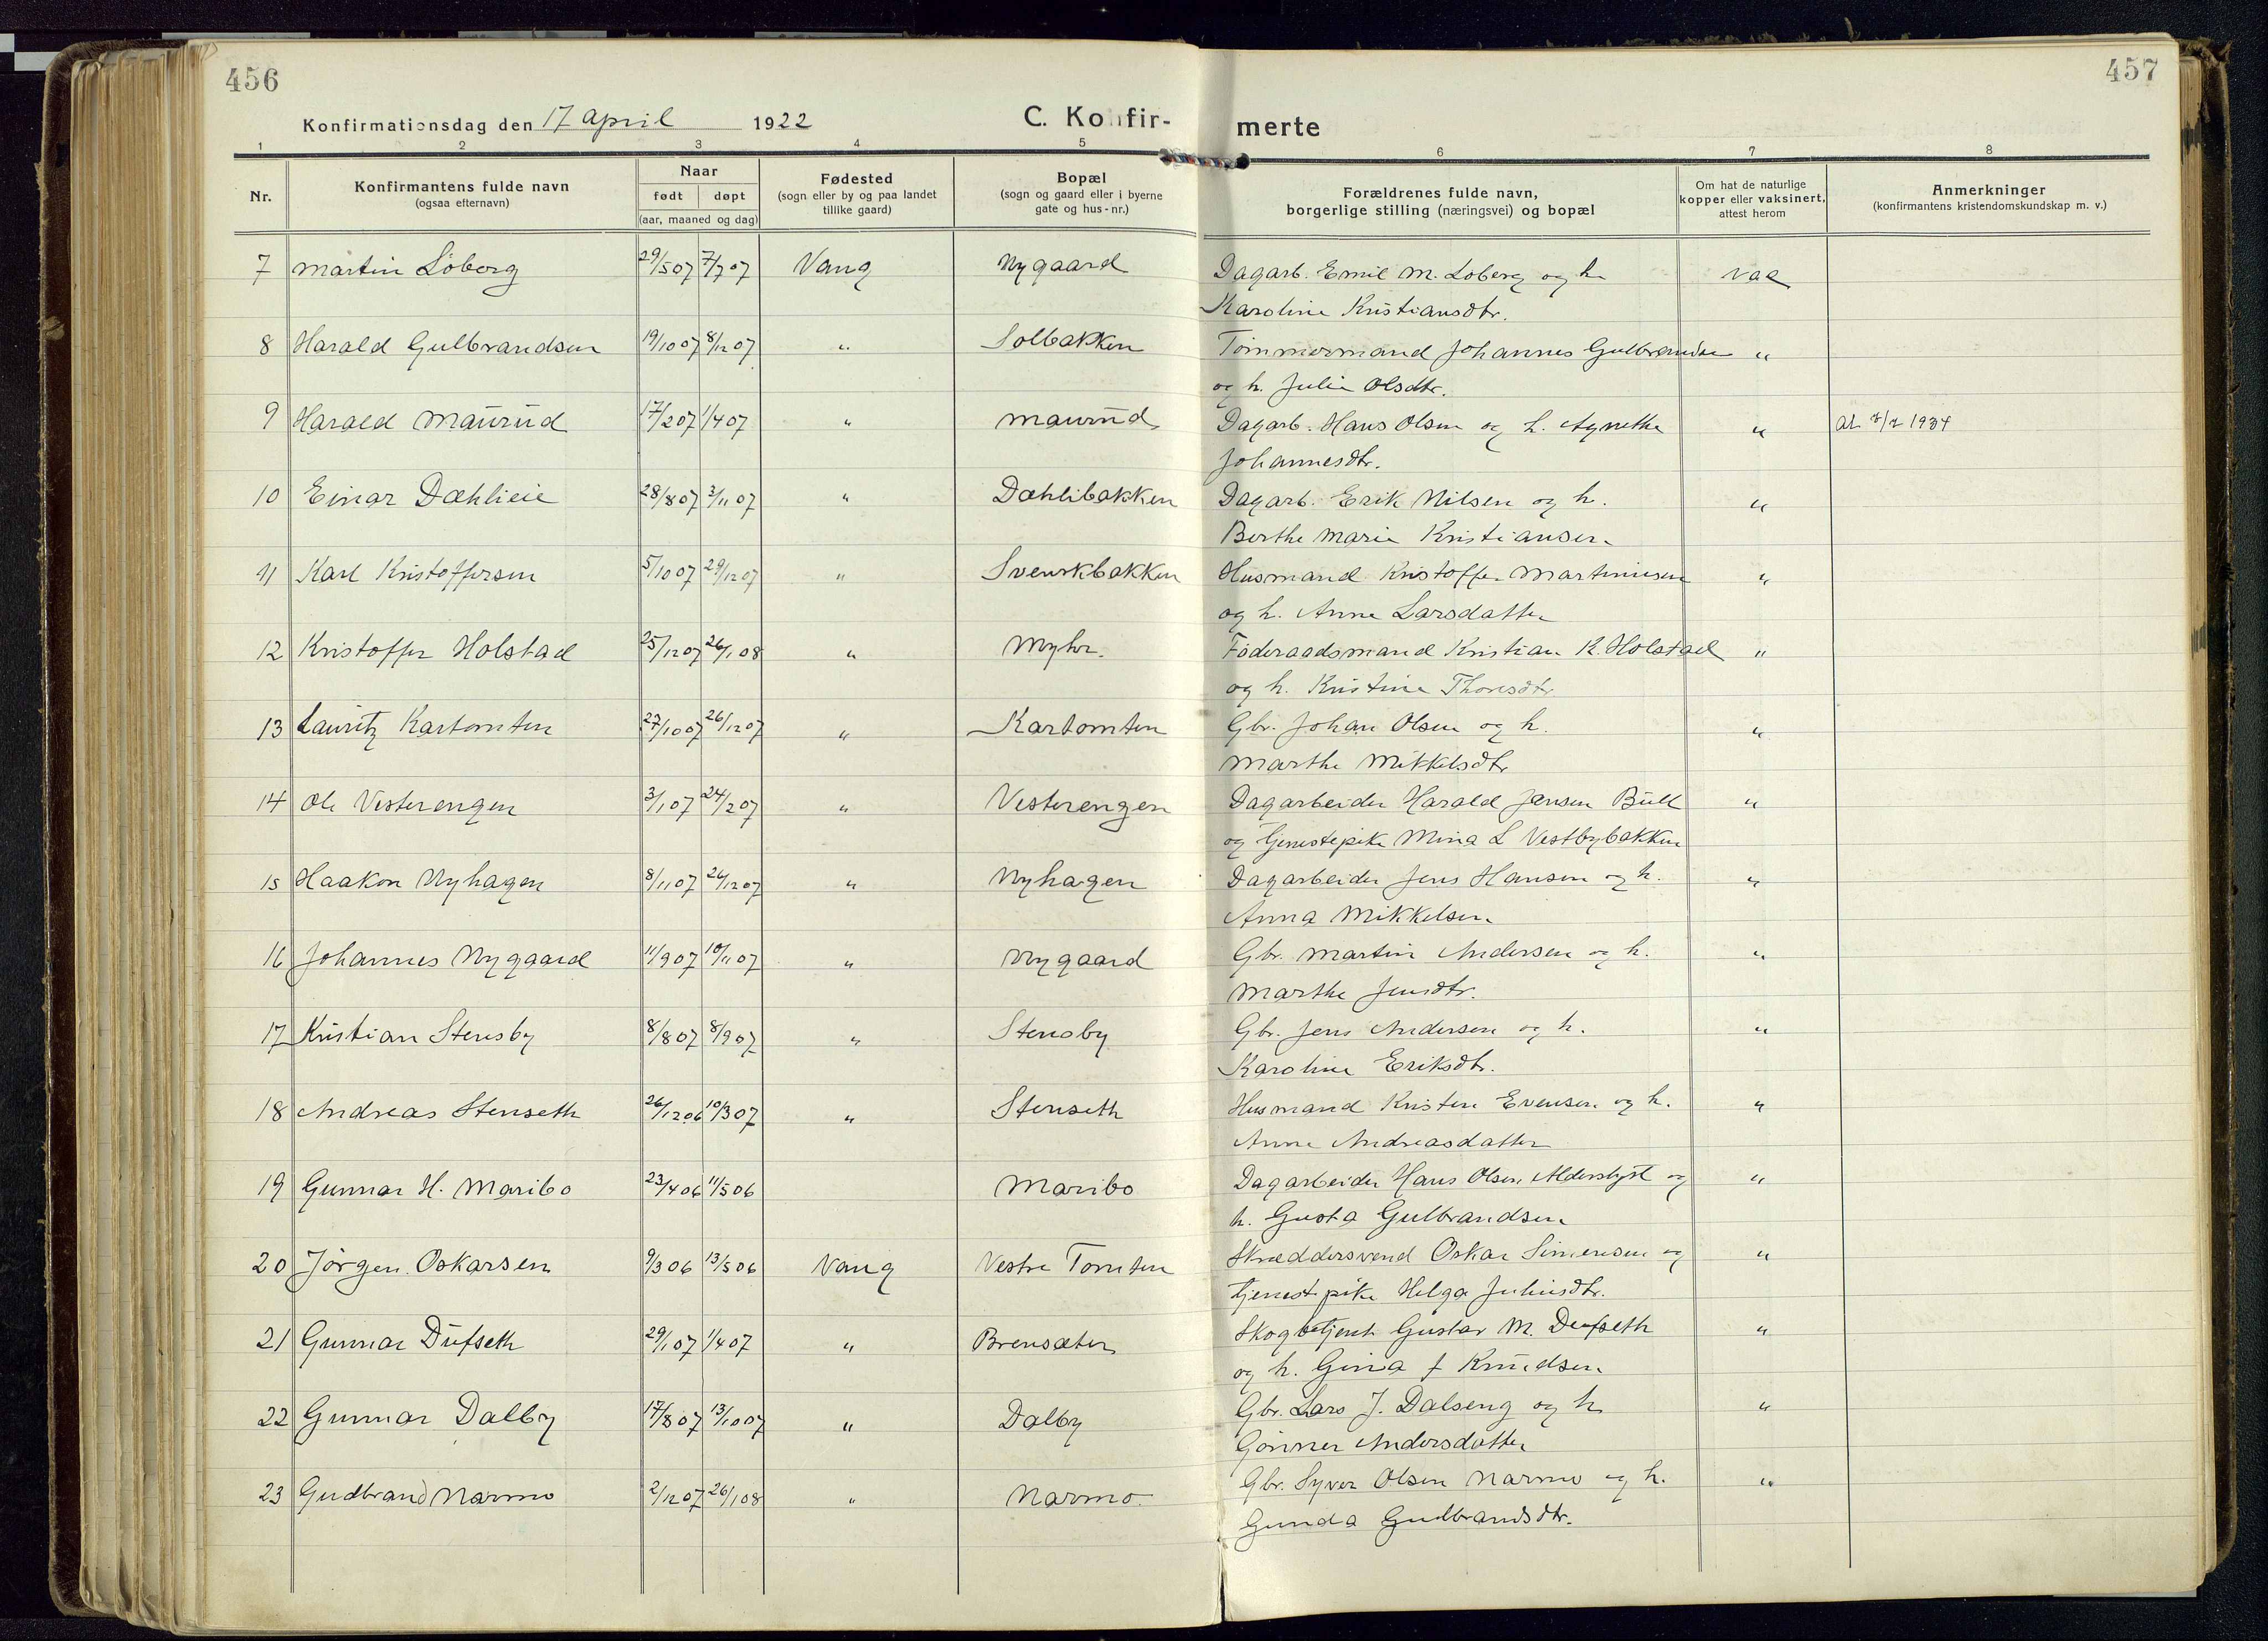 456
457
Konfirmationsdag den 17 april 1922
C. Konfir-
merte
1 2 3 4 5 6 7 8
Nr.
Konfirmantens fulde navn
(ogsaa efternavn)
Naar
født døpt
(aar, maaned og dag)
Fødested
(sogn eller by og paa landet
tillike gaard)
Bopæl
(sogn og gaard eller i byerne
gate og hus-nr.)
Forældrenes fulde navn,
borgerlige stilling (næringsvei) og bopæl
Om hat de naturlige
kopper eller vaksinert,
attest herom
Anmerkninger
(konfirmantens kristendomskundskap m. v.)
7 Martin Löberg 29/5 07 7/7 07 Vang Nygaard Dagarb. Emil M. Löberg og h. vac
Karoline Kristiansdtr.
8 Harald Gulbrandsen 19/10 07 8/12 07 " Solbakken Tömmermand Johannes Gulbrandsen "
og h. Julie Olsdtr.
9 Harald Maurud 17/2 07 1/4 07 " Maurud Dagarb. Hans Olsen og h. Agnethe " 1934
Johannesdtr.
10 Einar Dæhlieie 28/8 07 3/11 07 " Dæhlibakken Dagarb. Erik Nilsen og h. "
Berthe Marie Kristiansen
11 Karl Kristoffersen 5/10 07 29/12 07 " Svenskbakken Husmand Kristoffer Martinusen "
og h. Anne Larsdatter
12 Kristoffer Holstad 25/12 07 26/1 08 " Myhr. Föderaadsmand Kristian K. Holstad "
og h. Kristine Thoresdtr
13 Lauritz Kartomten 27/10 07 26/12 07 " Kartomten Gbr. Johan Olsen og h. "
Marthe Mikkelsdtr
14 Ole Vesterengen 3/1 07 24/2 07 " Vesterengen Dagarbeider Harald Jensen Bull "
og tjenestepike Mina L Vestbybakken
15 Haakon Nyhagen 8/11 07 26/12 07 " Nyhagen Dagarbeider Jens Hansen og h. "
Anna Mikkelsen
16 Johannes Nygaard 11/9 07 10/11 07 " Nygaard Gbr. Martin Andersen og h. "
Marthe Jensdtr.
17 Kristian Stensby 8/8 07 8/9 07 " Stensby Gbr. Jens Andersen og h. "
Karoline Eriksdtr.
18 Andreas Stenseth 26/12 06 10/3 07 " Stenseth Husmand Kristen Evensen og h. "
Anne Andreasdatter
19 Gunnar H. Maribo 23/4 06 11/5 06 Maribo Dagarbeider Hans Olsen Alderslyst og "
h. Gusta Gulbrandsen
20 Jörgen Oskarsen 9/3 06 13/5 06 Vang Vestre Tomten Skræddersvend Oskar Simensen og "
tjenestpike Helga Juliusdtr.
21 Gunnar Dufseth 29/1 07 1/4 07 " Brensæter Skogbetjent Gustav M. Dufseth "
og h. Gina f Knudsen
22 Gunnar Dalby 17/8 07 13/10 07 " Dalby Gbr. Lars J. Dalseng og h "
Gönner Andersdatter
23 Gudbrand Narmo 2/12 07 26/1 08 " Narmo. Gbr. Syver Olsen Narmo og h. "
Gunda Gudbrandsdtr.